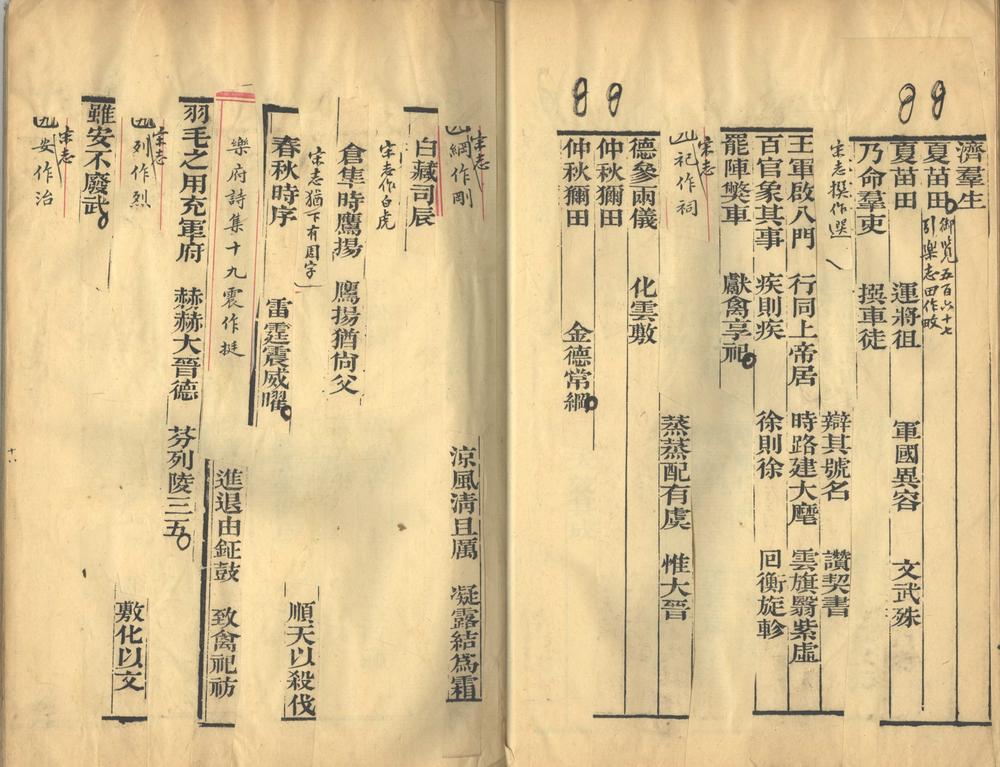 濟羣生
夏苗田
御覽五百六十七
引樂志田作畋
夏苗田 運將徂 軍國異容 文武殊
乃命羣吏 撰車徒
宋志撰作選
辯其號名 讚契書
王軍啟八門 行同上帝居 時路建大麾 雲旗翳紫虛
百官象其事 疾則疾 徐則徐 回衡旋軫
罷陣獘車 獻禽享祀
宋志
祀作祠
蒸蒸配有虞 惟大晉
德參兩儀 化雲敷
仲秋獮田
仲秋獮田 金德常綱
宋志
綱作剛
涼風清且厲 凝露結爲霜
白藏司辰
宋志作白虎
倉隼時鷹揚 鷹揚猶尙父
宋志猶下有周字
順天以殺伐
春秋時序 雷霆震威曜
樂府詩集十九震作挺
進退由鉦鼓 致禽祀祊
羽毛之用充軍府 赫赫大晉德 芬列陵三五
宋志
列作烈
敷化以文
雖安不廢武
宋志
安作治
十六